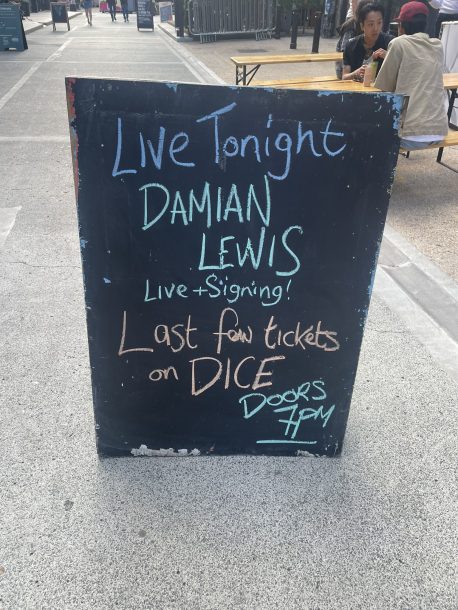 Live Tonight
DAMIAN
LEWIS
Live + Signing!
Last few tickets
on DICE
DOORS
7PM